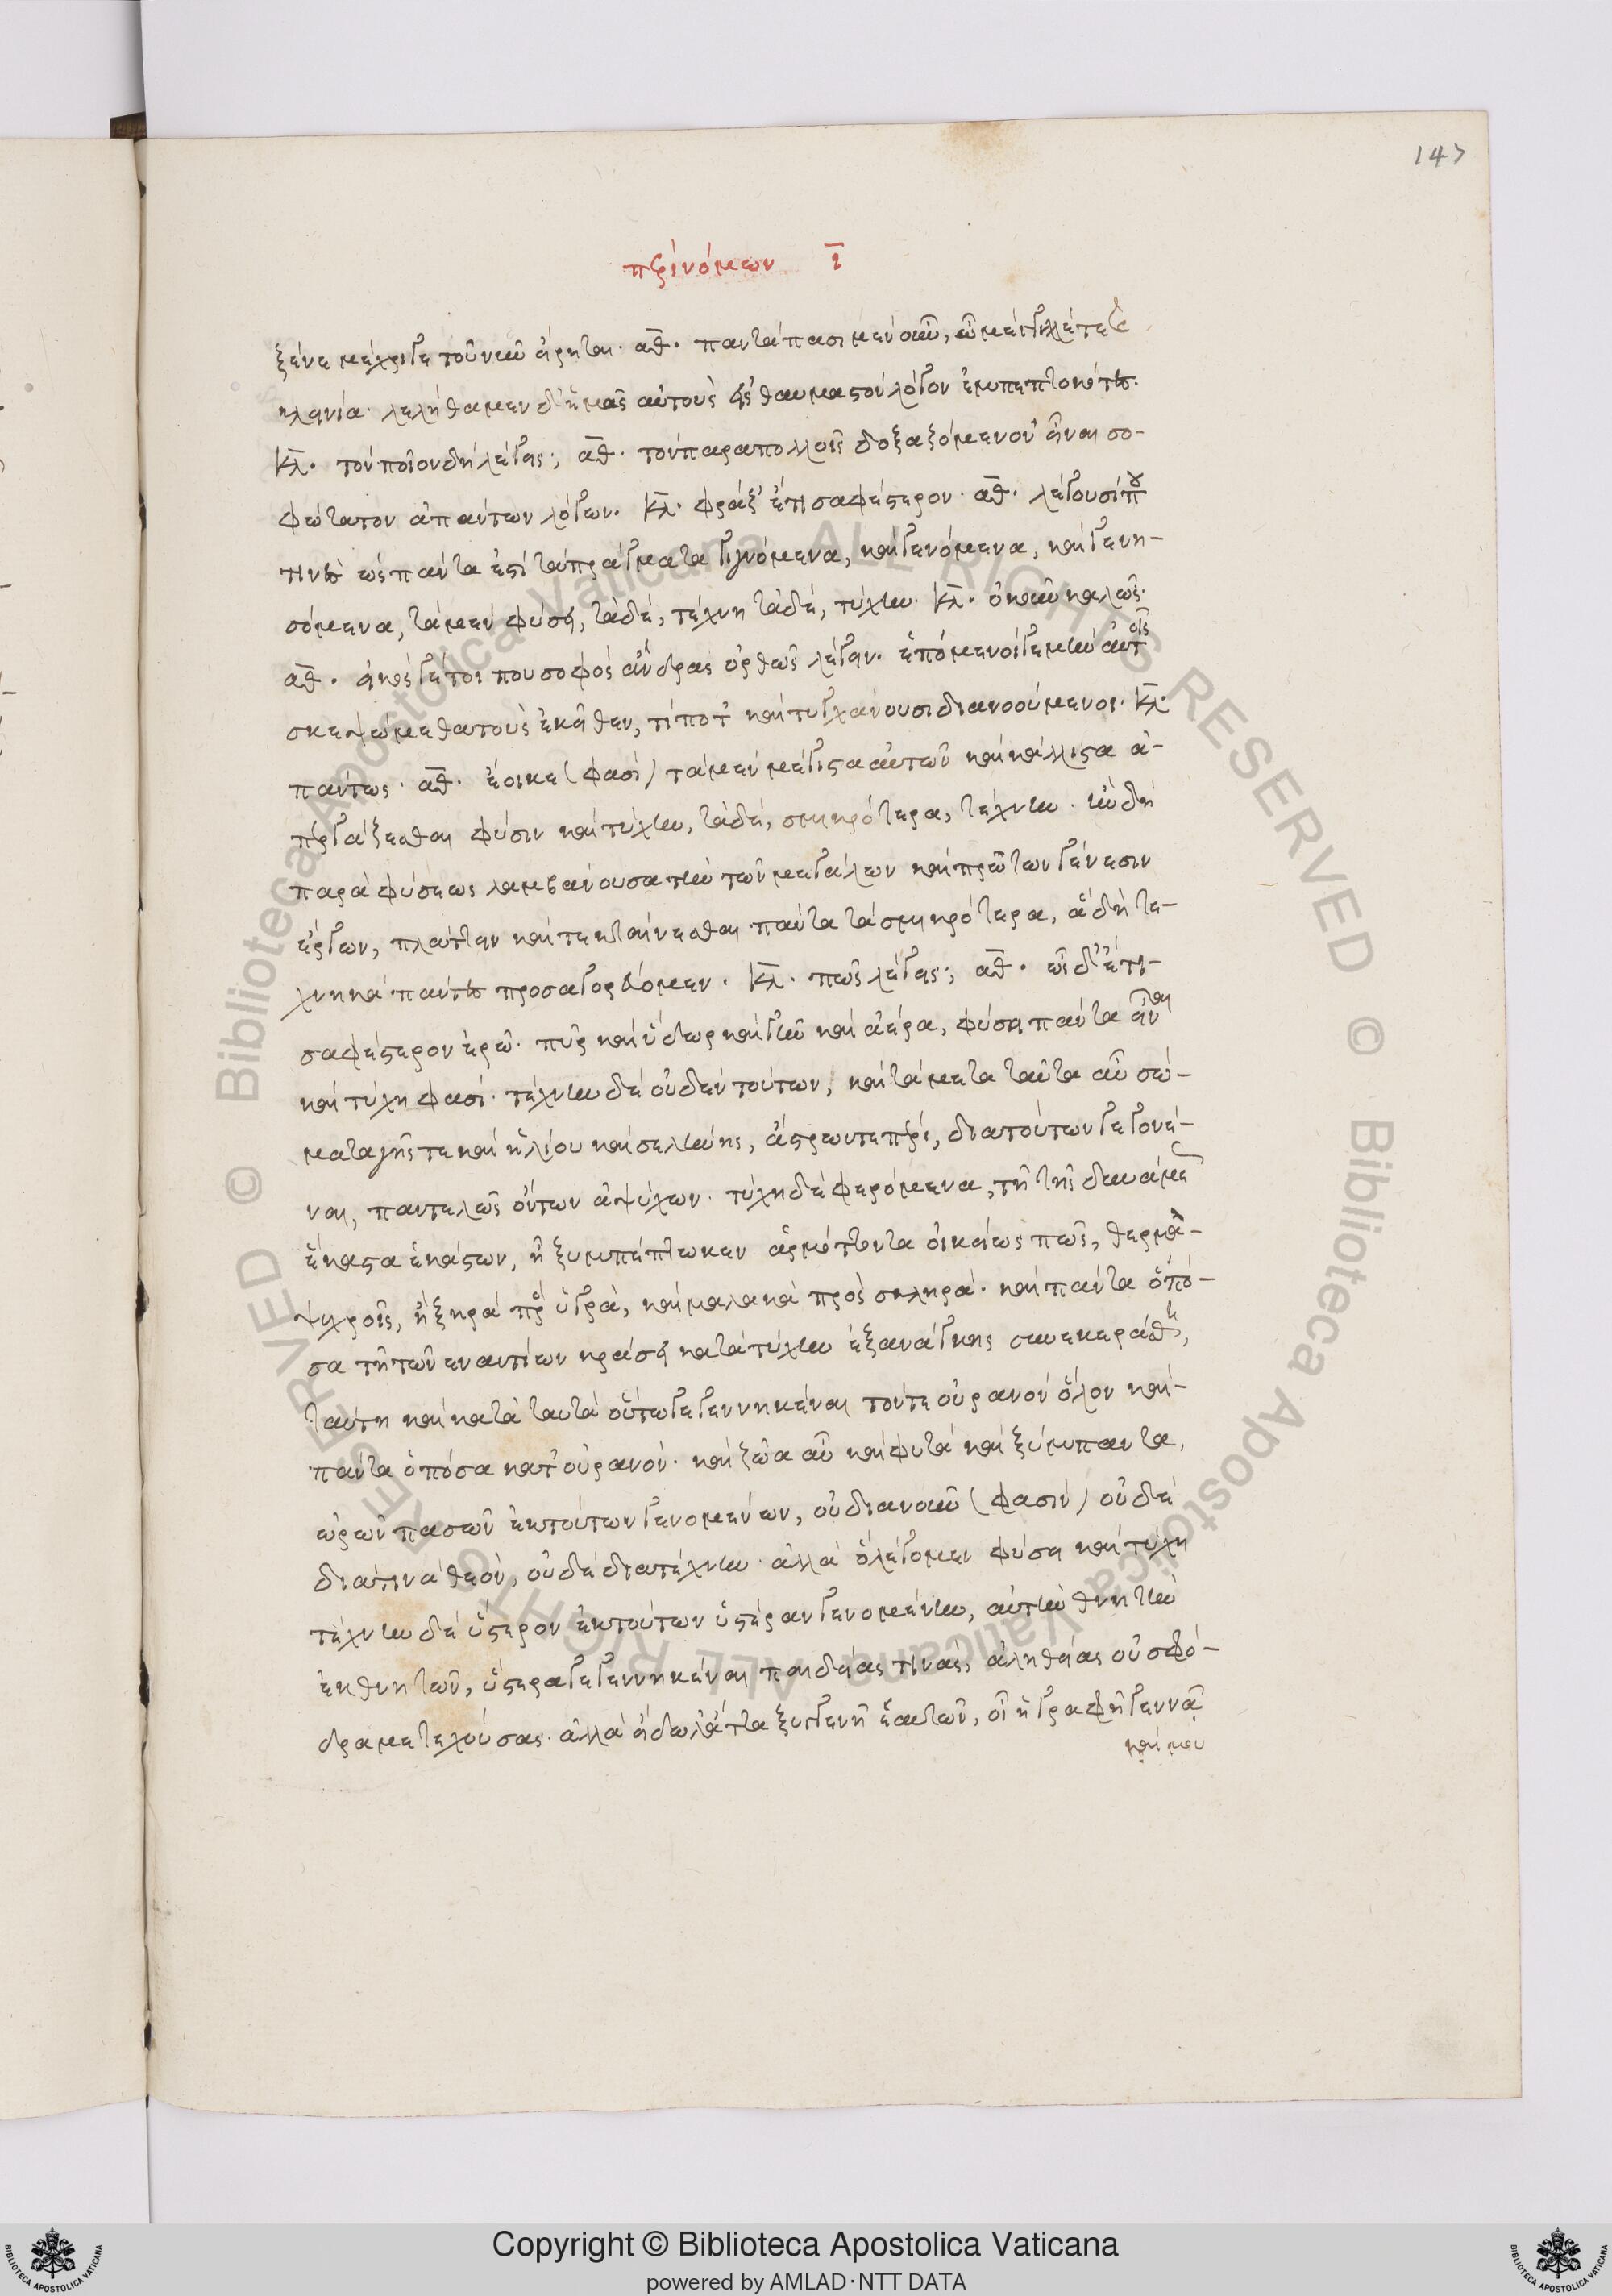 147
περὶ νόμων ῑ
ξένε μέχρι γε τοῦ νῦν εἴρηται. αθ. παντάπασι μὲν οὖν, ὦ μέγιλλέ τε καὶ
κλεινία. λελήθαμεν δ' ἡμᾶς αὐτοὺς εἰς θαυμαστὸν λόγον ἐμπεπτωκότες.
κλ. τὸν ποῖον δὴ λέγεις; αθ. τὸν παρὰ πολλοῖς δοξαζόμενον εἶναι σο-
φώτατον ἁπάντων λόγων. κλ. φράζ' ἔτι σαφέστερον. αθ. λέγουσί που
τινὲς ὡς πάντα ἐστὶ τὰ πράγματα γιγνόμενα, καὶ γενόμενα, καὶ γενη-
σόμενα, τὰ μὲν φύσει, τὰ δὲ, τέχνη τὰ δὲ, τύχην. κλ. οὐκοῦν καλῶς.
αθ. εἰκός γέ τοι που σοφοὺς ἄνδρας ὀρθῶς λέγειν. ἑπόμενοί γε μὴν αὐτοῖς
σκεψώμεθα τοὺς ἐκεῖθεν, τί ποτε καὶ τυγχάνουσι διανοούμενοι. κλ.
πάντως. αθ. ἔοικε (φασὶ) τὰ μὲν μέγιστα αὐτῶν καὶ κάλλιστα ἀ-
περγάζεσθαι φύσιν καὶ τύχην, τὰ δὲ, σμικρότερα, τέχνην. ἣν δὴ
παρὰ φύσεως λαμβάνουσα τὴν τῶν μεγάλων καὶ πρώτων γένεσιν
ἔργων, πλάττειν καὶ τεκταίνεσθαι πάντα τὰ σμικρότερα, ἃ δὴ τε-
χνηκὰ πάντες προσαγορεύομεν. κλ. πῶς λέγεις; αθ. ὧδ' ἔτι
σαφέστερον ἐρῶ. πῦρ καὶ ὕδωρ καὶ γῆν καὶ ἀέρα, φύσει πάντα εἶναι
καὶ τύχη φασί. τέχνην δὲ οὐδὲν τούτων, καὶ τὰ μετὰ ταῦτα αὖ σώ-
ματα γῆς τε καὶ ἡλίου καὶ σελήνης, ἄστρων τε πέρι, διὰ τούτων γεγονέ-
ναι, παντελῶς ὄντων ἀψύχων. τύχη δὲ φερόμενα, τῆ τῆς δυνάμεως
ἕκαστα ἑκάστων, ἧ ξυμπέπτωκεν ἁρμόττοντα οἰκείως πως, θερμὰ-
ψυχροῖς, ἢ ξηρὰ πρὸς ὑγρὰ, καὶ μαλακὰ πρὸς σκληρά. καὶ πάντα ὁπό-
σα τῆ τῶν ἐναντίων κράσει κατὰ τύχην ἐξ ἀνάγκης συνεκεράσθη,
ταύτη καὶ κατὰ ταυτὰ οὕτω γεγεννηκέναι τόν τε οὐρανὸν ὅλον καὶ-
πάντα ὁπόσα κατ' οὐρανόν. καὶ ζῶα αὖ καὶ φυτὰ καὶ ξύμπαντα,
ὡρῶν πασῶν ἐκ τούτων γενομένων, οὐ διὰ νοῦν (φασὶν) οὐδὲ
διά τινα θεὸν, οὐδὲ διὰ τέχνην. ἀλλὰ ὃ λέγομεν φύσει καὶ τύχη
τέχνην δὲ ὕστερον ἐκ τούτων ὑστέραν γενομένην, αὐτὴν θνητὴν
ἐκ θνητῶν, ὕστερα γεγεννηκέναι παιδείας τινὰς, ἀληθείας οὐ σφό-
δρα μετεχούσας. ἀλλὰ εἴδωλ' ἄττα ξυγγενῆ ἑαυτῶν, οἷ' ἡ γραφὴ γεννᾶ
καὶ μου